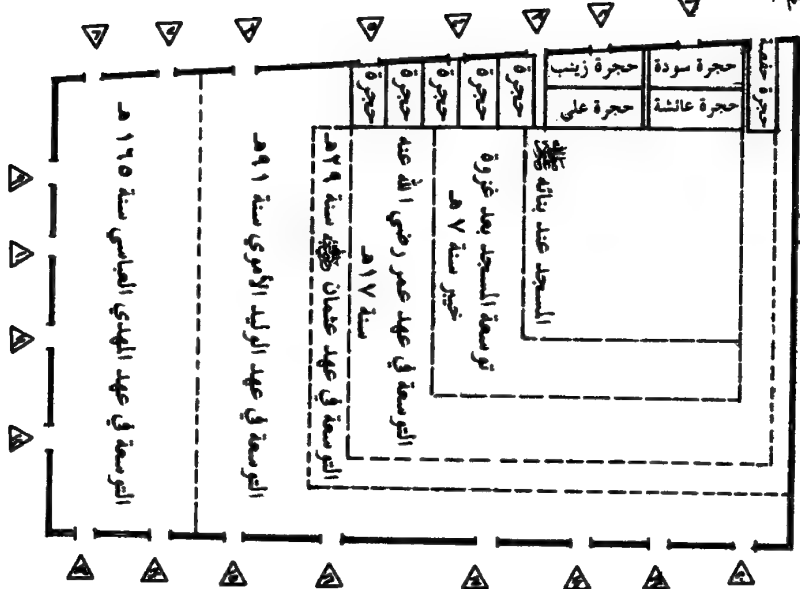 حجرة حفصة
حجرة سودة
حجرة زينب
حجرة عائشة
حجرة على
حجرة
حجرة
حجرة
حجرة
حجرة
المسجد عند بنائه ﷺ
توسعة المسجد بعد غزوة
خيبر سنة ٧ هـ
التوسعة في عهد عمر رضي الله عنه
سنة ١٧هـ
التوسعة في عهد عثمان رضي الله عنه سنة ٢٩هـ
التوسعة في عهد الوليد الأموي سنة ٩١هـ
التوسعة في عهد المهدي العباسي سنة ١٦٥ هـ